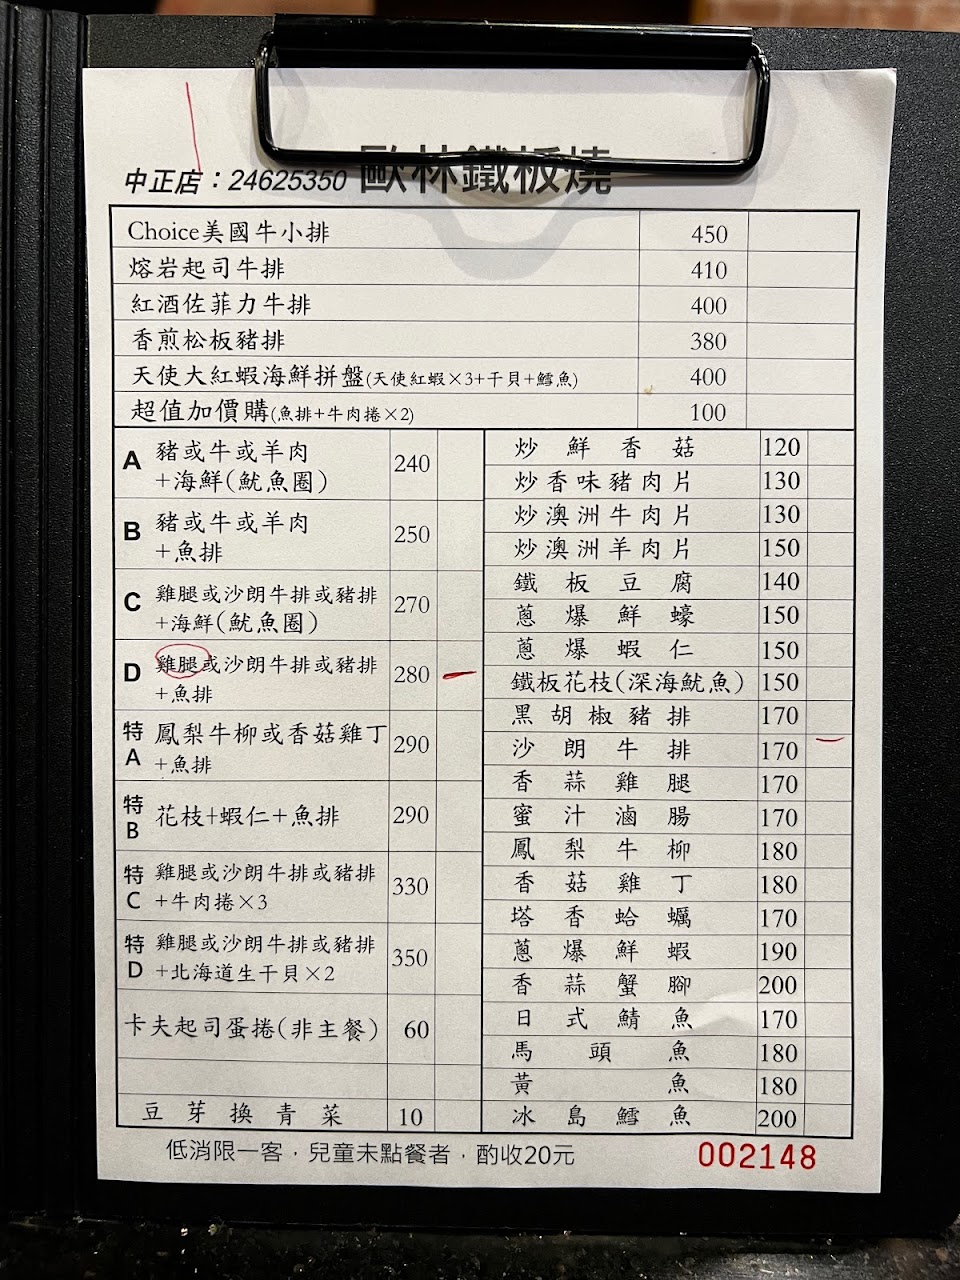 中正店：24625350 歐林鐵板燒
Choice美國牛小排 450
熔岩起司牛排 410
紅酒佐菲力牛排 400
香煎松板豬排 380
天使大紅蝦海鮮拼盤(天使紅蝦×3+干貝+鱈魚) 400
超值加價購(魚排+牛肉捲×2) 100
A 豬或牛或羊肉
+海鮮(魷魚圈) 240
B 豬或牛或羊肉
+魚排 250
C 雞腿或沙朗牛排或豬排
+海鮮(魷魚圈) 270
D 雞腿或沙朗牛排或豬排
+魚排 280
特A 鳳梨牛柳或香菇雞丁
+魚排 290
特B 花枝+蝦仁+魚排 290
特C 雞腿或沙朗牛排或豬排
+牛肉捲×3 330
特D 雞腿或沙朗牛排或豬排
+北海道生干貝×2 350
卡夫起司蛋捲(非主餐) 60
豆芽換青菜 10
炒鮮香菇 120
炒香味豬肉片 130
炒澳洲牛肉片 130
炒澳洲羊肉片 150
鐵板豆腐 140
蔥爆鮮蠔 150
蔥爆蝦仁 150
鐵板花枝(深海魷魚) 150
黑胡椒豬排 170
沙朗牛排 170
香蒜雞腿 170
蜜汁滷腸 170
鳳梨牛柳 180
香菇雞丁 180
塔香蛤蠣 170
蔥爆鮮蝦 190
香蒜蟹腳 200
日式鯖魚 170
馬頭魚 180
黃魚 180
冰島鱈魚 200
低消限一客，兒童未點餐者，酌收20元
002148